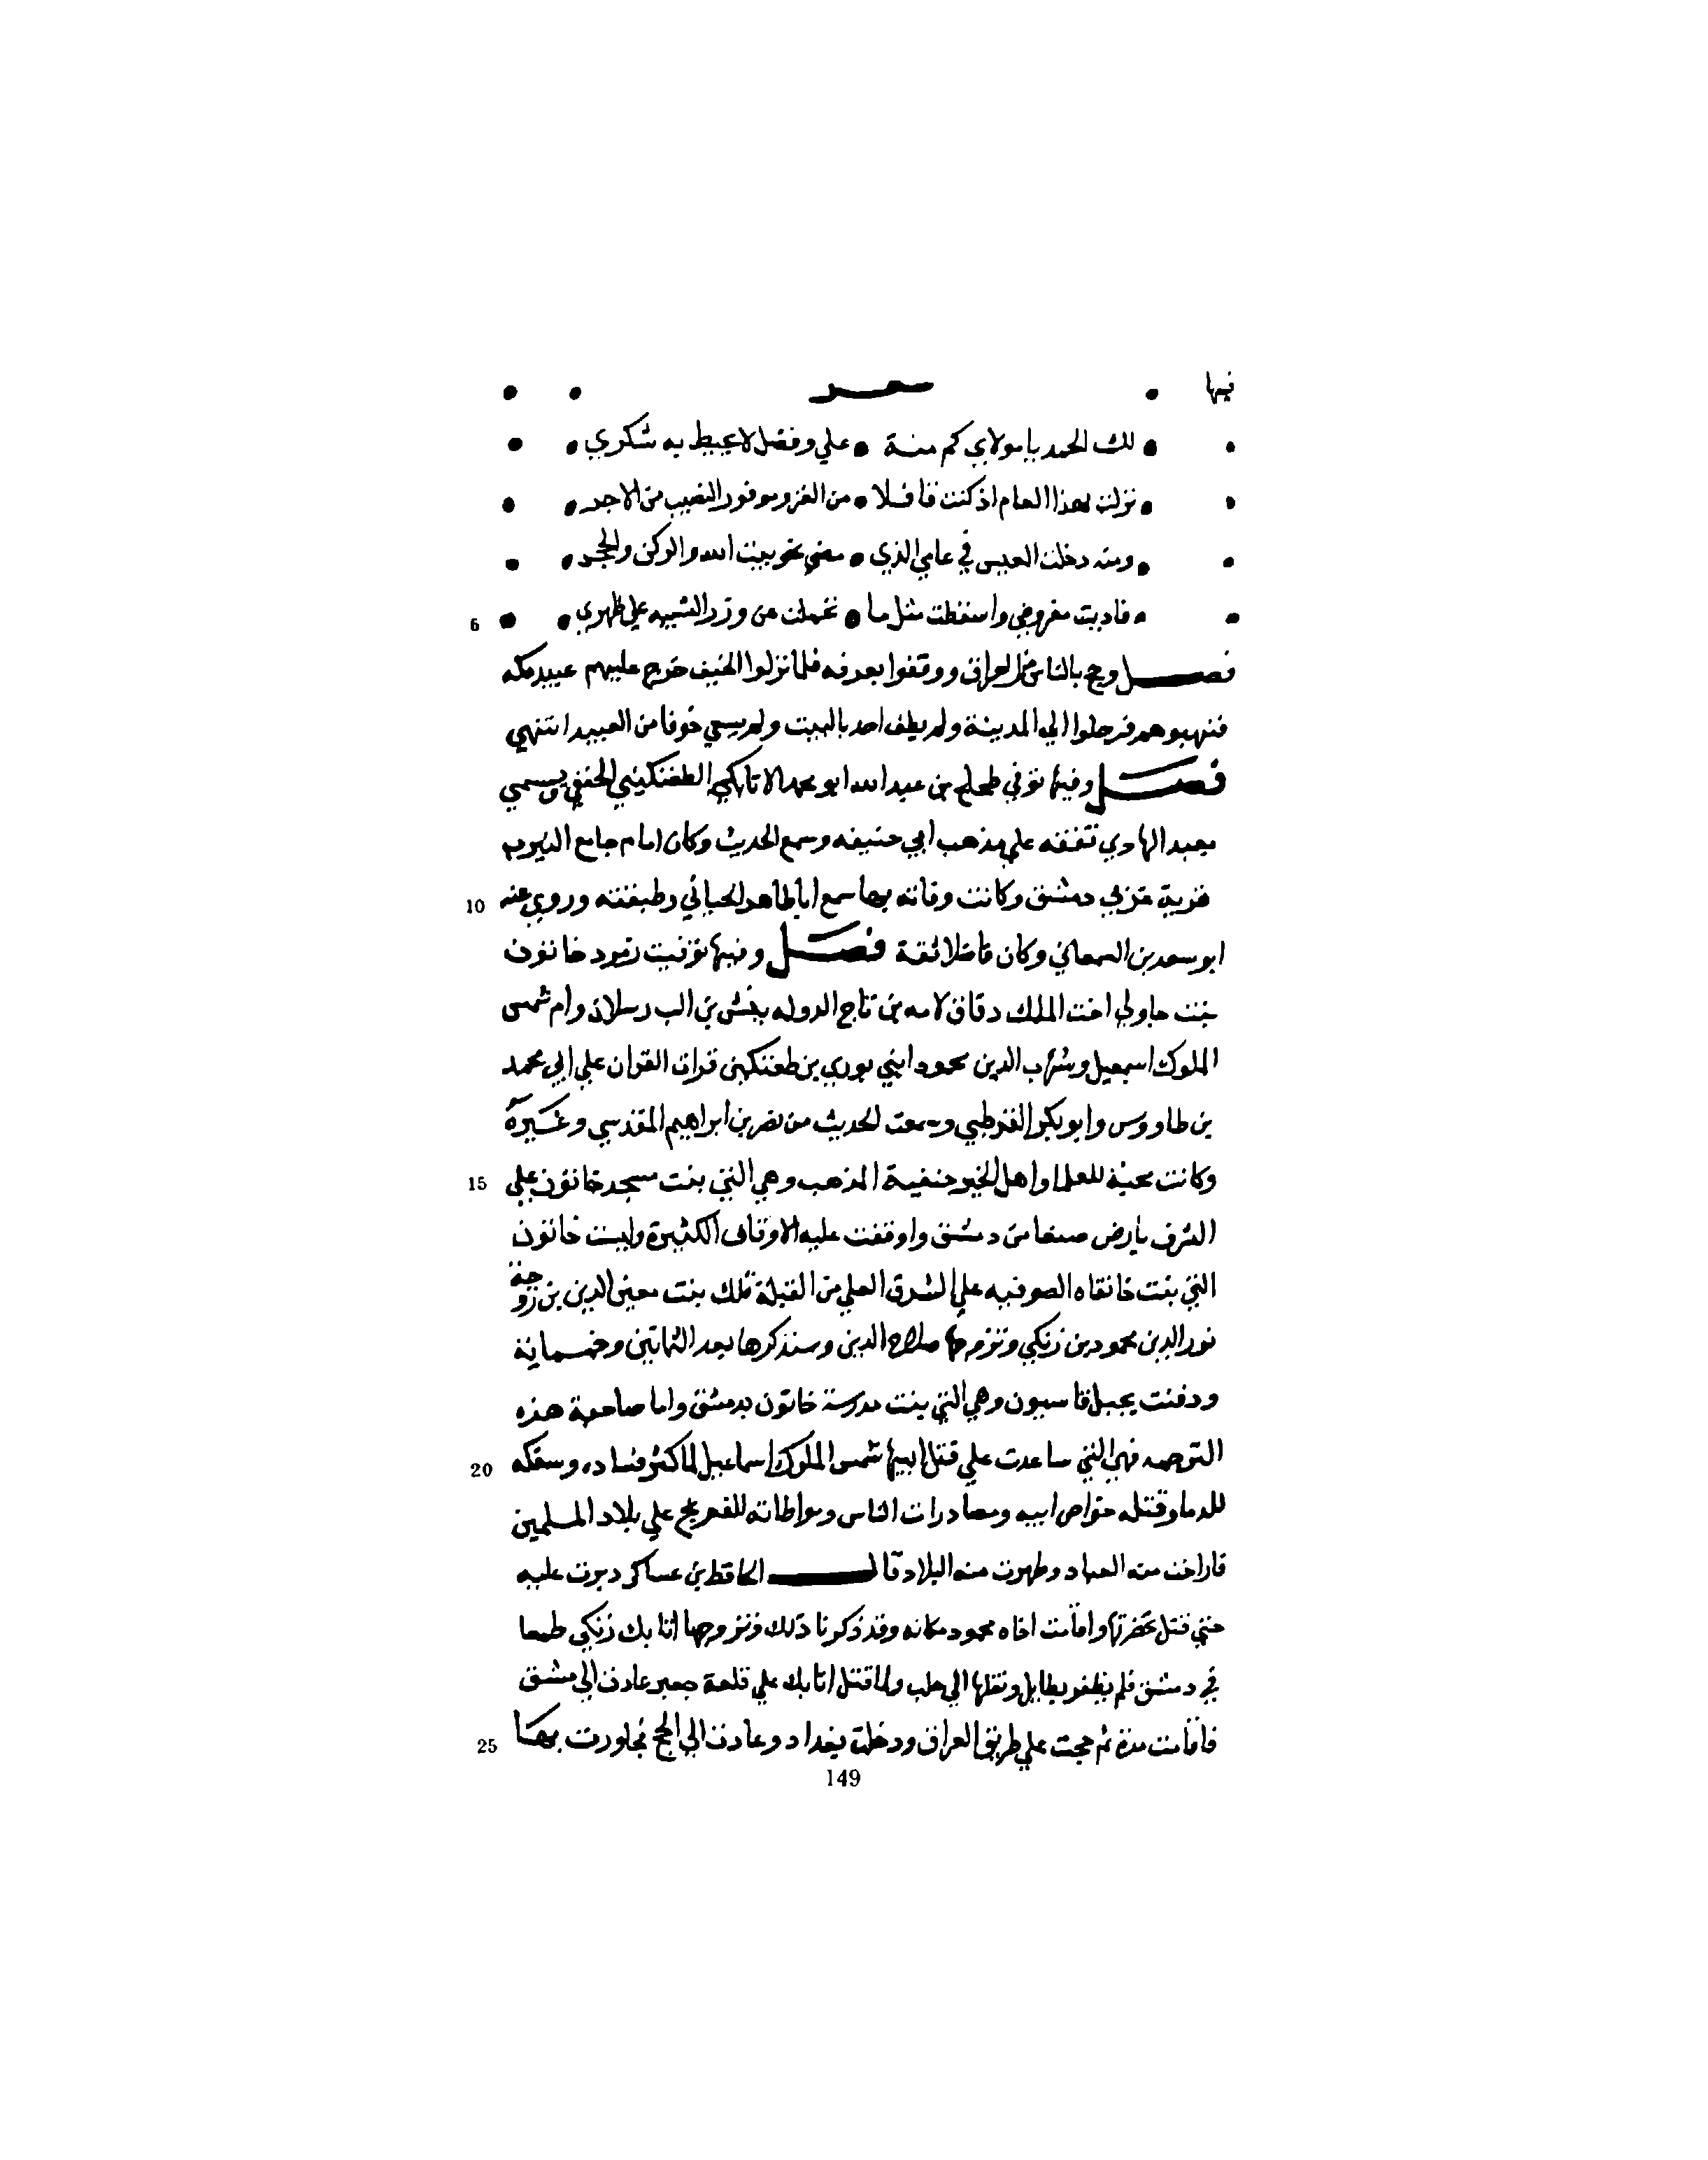 فيها • شعر • •
• • لك الحمد يا مولاي كم منة • علي وفضل لا يحيط به شكري • •
• • نزلت بهذا العام اذ كنت قافلا • من الغزو موفور النصيب من الاجر • •
• • ومنه دخلت العيس في عامي الذي • مضي نحو بيت الله والركن والحجر • •
• • فاديت مفروضي واسقطت مثل ما • تحملت من وزر الشبيبه علي ظهري • • 5
فصل وحج بالناس من العراق ووقفوا بعرفه فلما نزلوا الخيف خرج عليهم عبيد مكه
فنهبوهم فرحلوا الي المدينة ولم يطف احد بالبيت ولم يسعي خوفا من العبيد انتهي
فصل وفيها توفي طحلج بن عبد الله ابو محمد الاتابكي الطغتكيني الحنفي ويسمي
بعبد الهادي تفقه علي مذهب ابي حنيفه وسمع الحديث وكان امام جامع النيرب
قرية غربي دمشق وكانت وفاته بها سمع ابا طاهر الحنائي وطبقته وروي عنه 10
ابو سعد بن السمعاني وكان فاضلا ثقة فصل وفيها توفيت زمرد خاتون
بنت جاولي اخت الملك دقاق لامه بن تاج الدوله تتش بن الب رسلان وام شمس
الملوك اسمعيل وشهاب الدين محمود ابني بوري بن طغتكين قرات القران علي ابي محمد
بن طاووس وابو بكر القرطبي وسمعت الحديث من نصر بن ابراهيم المقدسي وغيره
وكانت محبة للعلما واهل الخير حنفية المذهب وهي التي بنت مسجد خاتون علي 15
الشرف بارض صنعا من دمشق واوقفت عليه الاوقاف الكثيرة وليست خاتون
التي بنت خانقاه الصوفيه علي الشرق العلي من القبلة تلك بنت معين الدين بن زوجة
نور الدين محمود بن زنكي وتزوجها صلاح الدين وسنذكرها بعد الثمانين وخمسماية
ودفنت بجبل قاسيون وهي التي بنت مدرسة خاتون بدمشق واما صاحبة هذه
الترجمه فهي التي ساعدت علي قتل ابنها شمس الملوك اسماعيل لما كثر فساده وسفكه 20
للدما وقتله خواص ابيه ومصادرات الناس ومواطاته للفرنج علي بلاد المسلمين
فاراحت منه العباد وطهرت منه البلاد قال الحافظ بن عساكر دبرت عليه
حتي قتل بحضرتها واقامت اخاه محمود مكانه وقد ذكرنا ذلك وتزوجها اتابك زنكي طمعا
في دمشق فلم يظفر بطايل ونقلها الي حلب ولما قتل اتابك علي قلعة جعبر عادت الي مشق
فاقامت مدة ثم حجت علي طريق العراق ودخلت بغداد وعادت الي الحج فجاورت بها 25
149